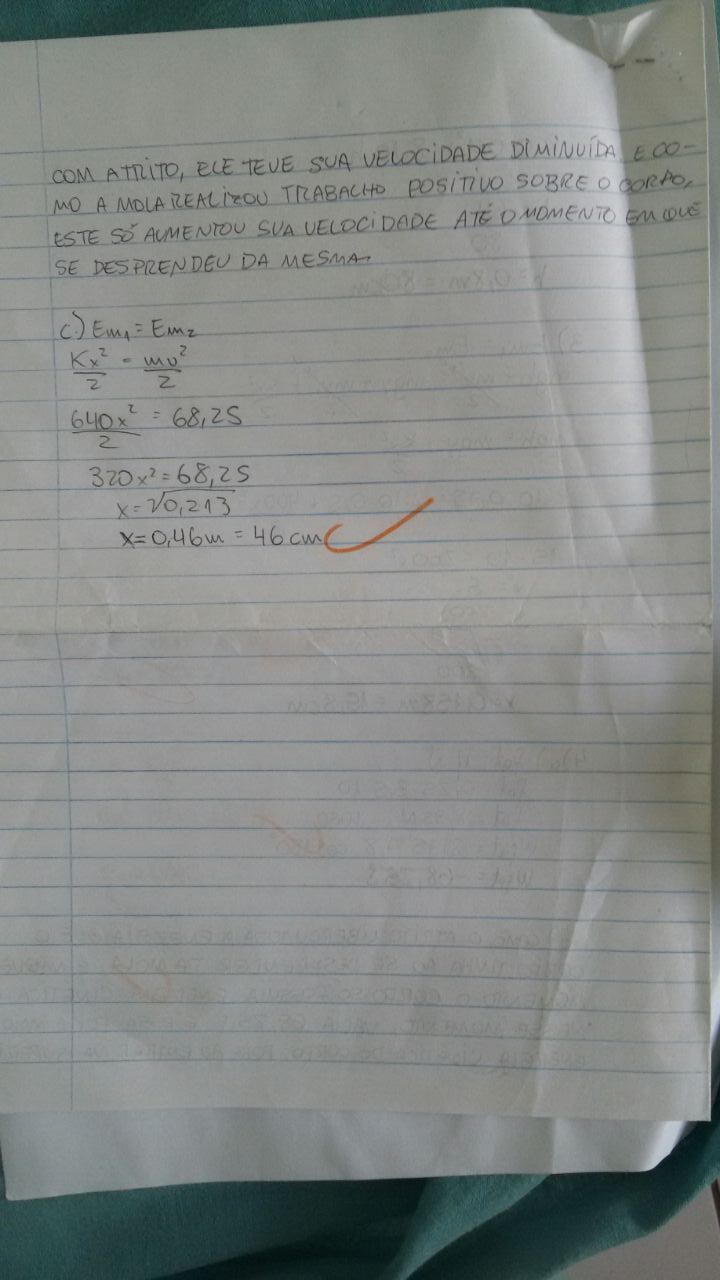 COM ATRITO, ELE TEVE SUA VELOCIDADE DIMINUÍDA E CO-
MO A MOLA REALIZOU TRABALHO POSITIVO SOBRE O CORPO,
ESTE SÓ AUMENTOU SUA VELOCIDADE ATÉ O MOMENTO EM QUE
SE DESPRENDEU DA MESMA.
C.) Em₁ = Em₂
Kx²/2 = mv²/2
640x²/2 = 68,25
320x² = 68,25
x = √0,213
x = 0,46m = 46 cm